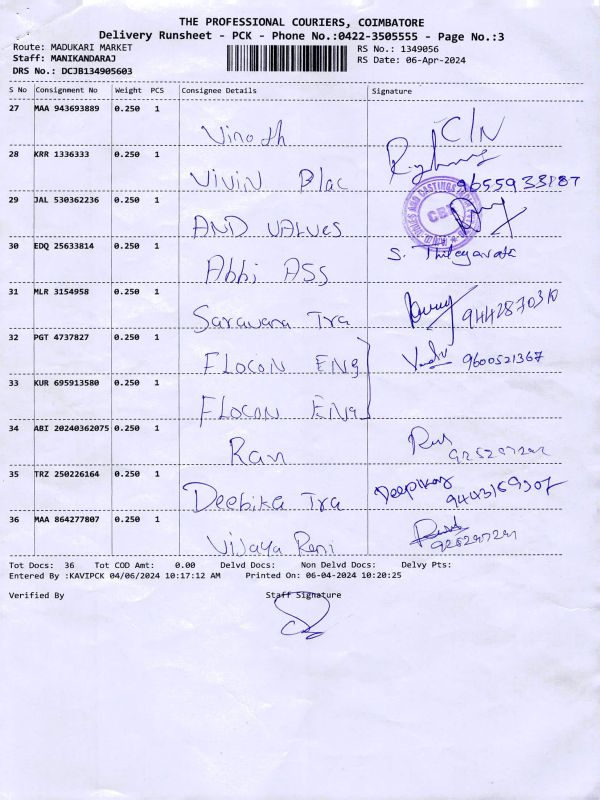 THE PROFESSIONAL COURIERS, COIMBATORE
Delivery Runsheet - PCK - Phone No.:0422-3505555 - Page No.:3
Route: MADUKARI MARKET
RS No.: 1349056
Staff: MANIKANDARAJ
RS Date: 06-Apr-2024
DRS No.: DCJB134905603
S No Consignment No Weight PCS Consignee Details Signature
27 MAA 943693889 0.250 1 Vinoth C/N
28 KRR 1336333 0.250 1 Vivin Plac 9655933187
29 JAL 530362236 0.250 1 AND VALVES
30 EDQ 25633814 0.250 1 Abbi ASS S. Thilagavathi
31 MLR 3154958 0.250 1 Saravana Tra 9442870310
32 PGT 4737827 0.250 1 FLOCON ENg 9600521367
33 KUR 695913580 0.250 1 FLOCON ENg
34 ABI 20240362075 0.250 1 Ravi
35 TRZ 250226164 0.250 1 Deebika Tra Deepikaa
36 MAA 864277807 0.250 1 Vijaya Rani
Tot Docs: 36 Tot COD Amt: 0.00 Delvd Docs: Non Delvd Docs: Delvy Pts:
Entered By :KAVIPCK 04/06/2024 10:17:12 AM Printed On: 06-04-2024 10:20:25
Verified By Staff Signature